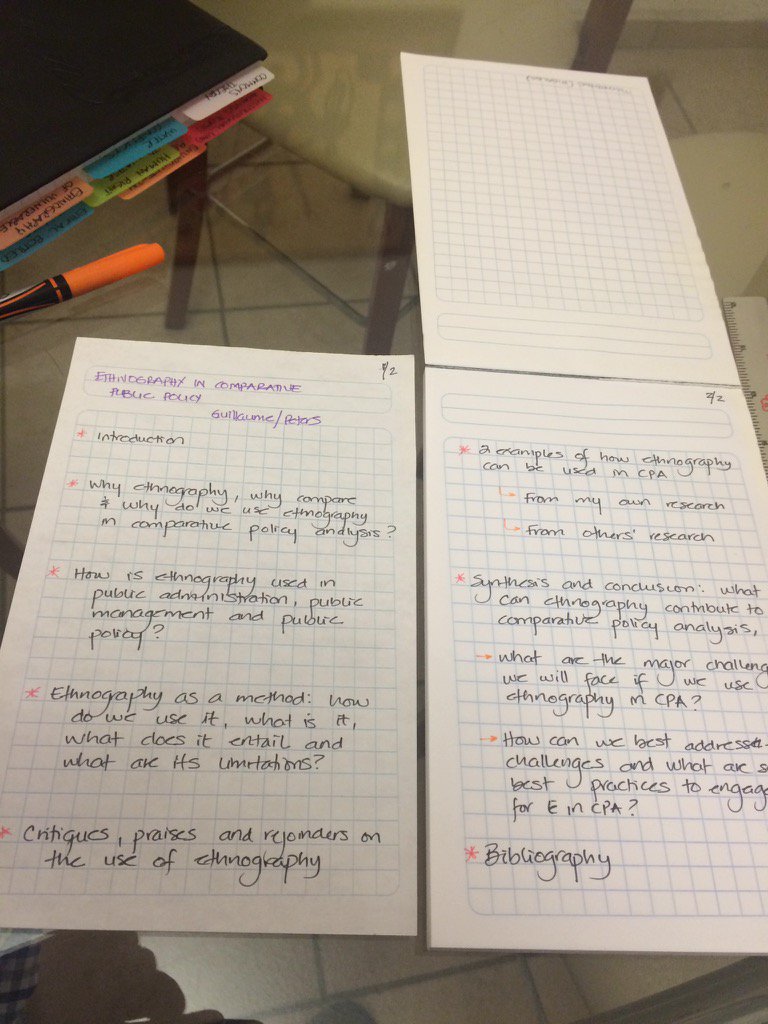 COMMONS
WATER
HUMAN RIGHT
ETHNOGRAPHY
OF VULNERABLE
1/2
ETHNOGRAPHY IN COMPARATIVE
PUBLIC POLICY
Guillaume/Peters
* Introduction
* Why ethnography, why compare
& why do we use ethnography
in comparative policy analysis?
* How is ethnography used in
public administration, public
management and public
policy?
* Ethnography as a method: how
do we use it, what is it,
what does it entail and
what are its limitations?
* Critiques, praises and rejoinders on
the use of ethnography
2/2
* 2 examples of how ethnography
can be used in CPA
↳ from my own research
↳ from others' research
* Synthesis and conclusion: what
can ethnography contribute to
comparative policy analysis,
→ what are the major challeng
we will face if we use
ethnography in CPA?
→ How can we best address
challenges and what are s
best practices to engage
for E in CPA?
* Bibliography